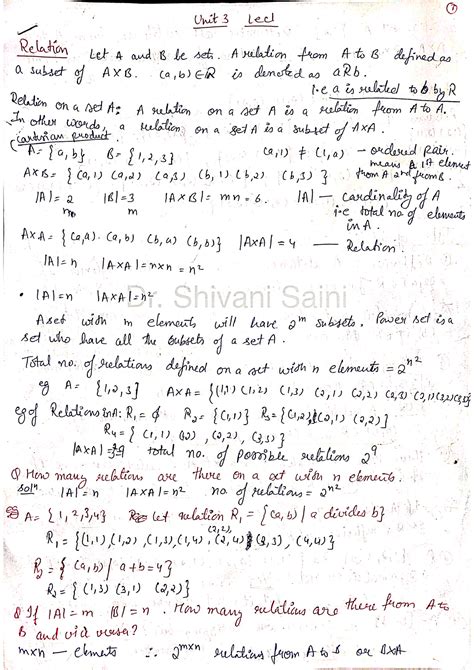 Unit 3 Lec1
Relation Let A and B be sets. A relation from A to B defined as
a subset of A×B. (a,b) ∈ R is denoted as aRb.
i.e a is related to b by R
Relation on a set A: A relation on a set A is a relation from A to A.
In other words, a relation on a set A is a subset of A×A.
Cartesian product
A = {a, b} B = {1, 2, 3} (a,1) ≠ (1,a) – ordered pair
means 1st element
from A 2nd from B.
A×B = { (a,1) (a,2) (a,3) (b,1) (b,2) (b,3) }
|A| = 2 |B| = 3 |A×B| = mn = 6. |A| – cardinality of A
m n i.e total no of elements
in A.
A×A = { (a,a). (a,b) (b,a) (b,b)} |A×A| = 4 — Relation
|A| = n |A×A| = n×n = n²
• |A| = n |A×A| = n²
Dr. Shivani Saini
A set with m elements will have 2^m subsets. Power set is a
set who have all the subsets of a set A.
Total no. of relations defined on a set with n elements = 2^n²
eg A = {1,2,3} A×A = {(1,1) (1,2) (1,3) (2,1) (2,2) (2,3) (3,1) (3,2) (3,3)}
eg of Relations on A: R₁ = ϕ R₂ = {(1,1)} R₃ = {(1,2) (2,1) (2,2)}
R₄ = { (1,1) (2,2), (3,3) }
|A×A| = 9 total no. of possible relations 2⁹
Q How many relations are there on a set with n elements.
solⁿ |A| = n |A×A| = n² no. of relations = 2^n²
A = {1,2,3,4} let relation R₁ = {(a,b) | a divides b}
R₁ = {(1,1), (1,2), (1,3), (1,4), (2,2), (2,4) (3,3), (4,4)}
R₂ = { (a,b) | a+b=4}
R₂ = { (1,3) (3,1) (2,2)}
Q If |A| = m |B| = n. How many relations are there from A to
B and vice versa?
m×n – elements ∴ 2^m×n relations from A to B or B×A